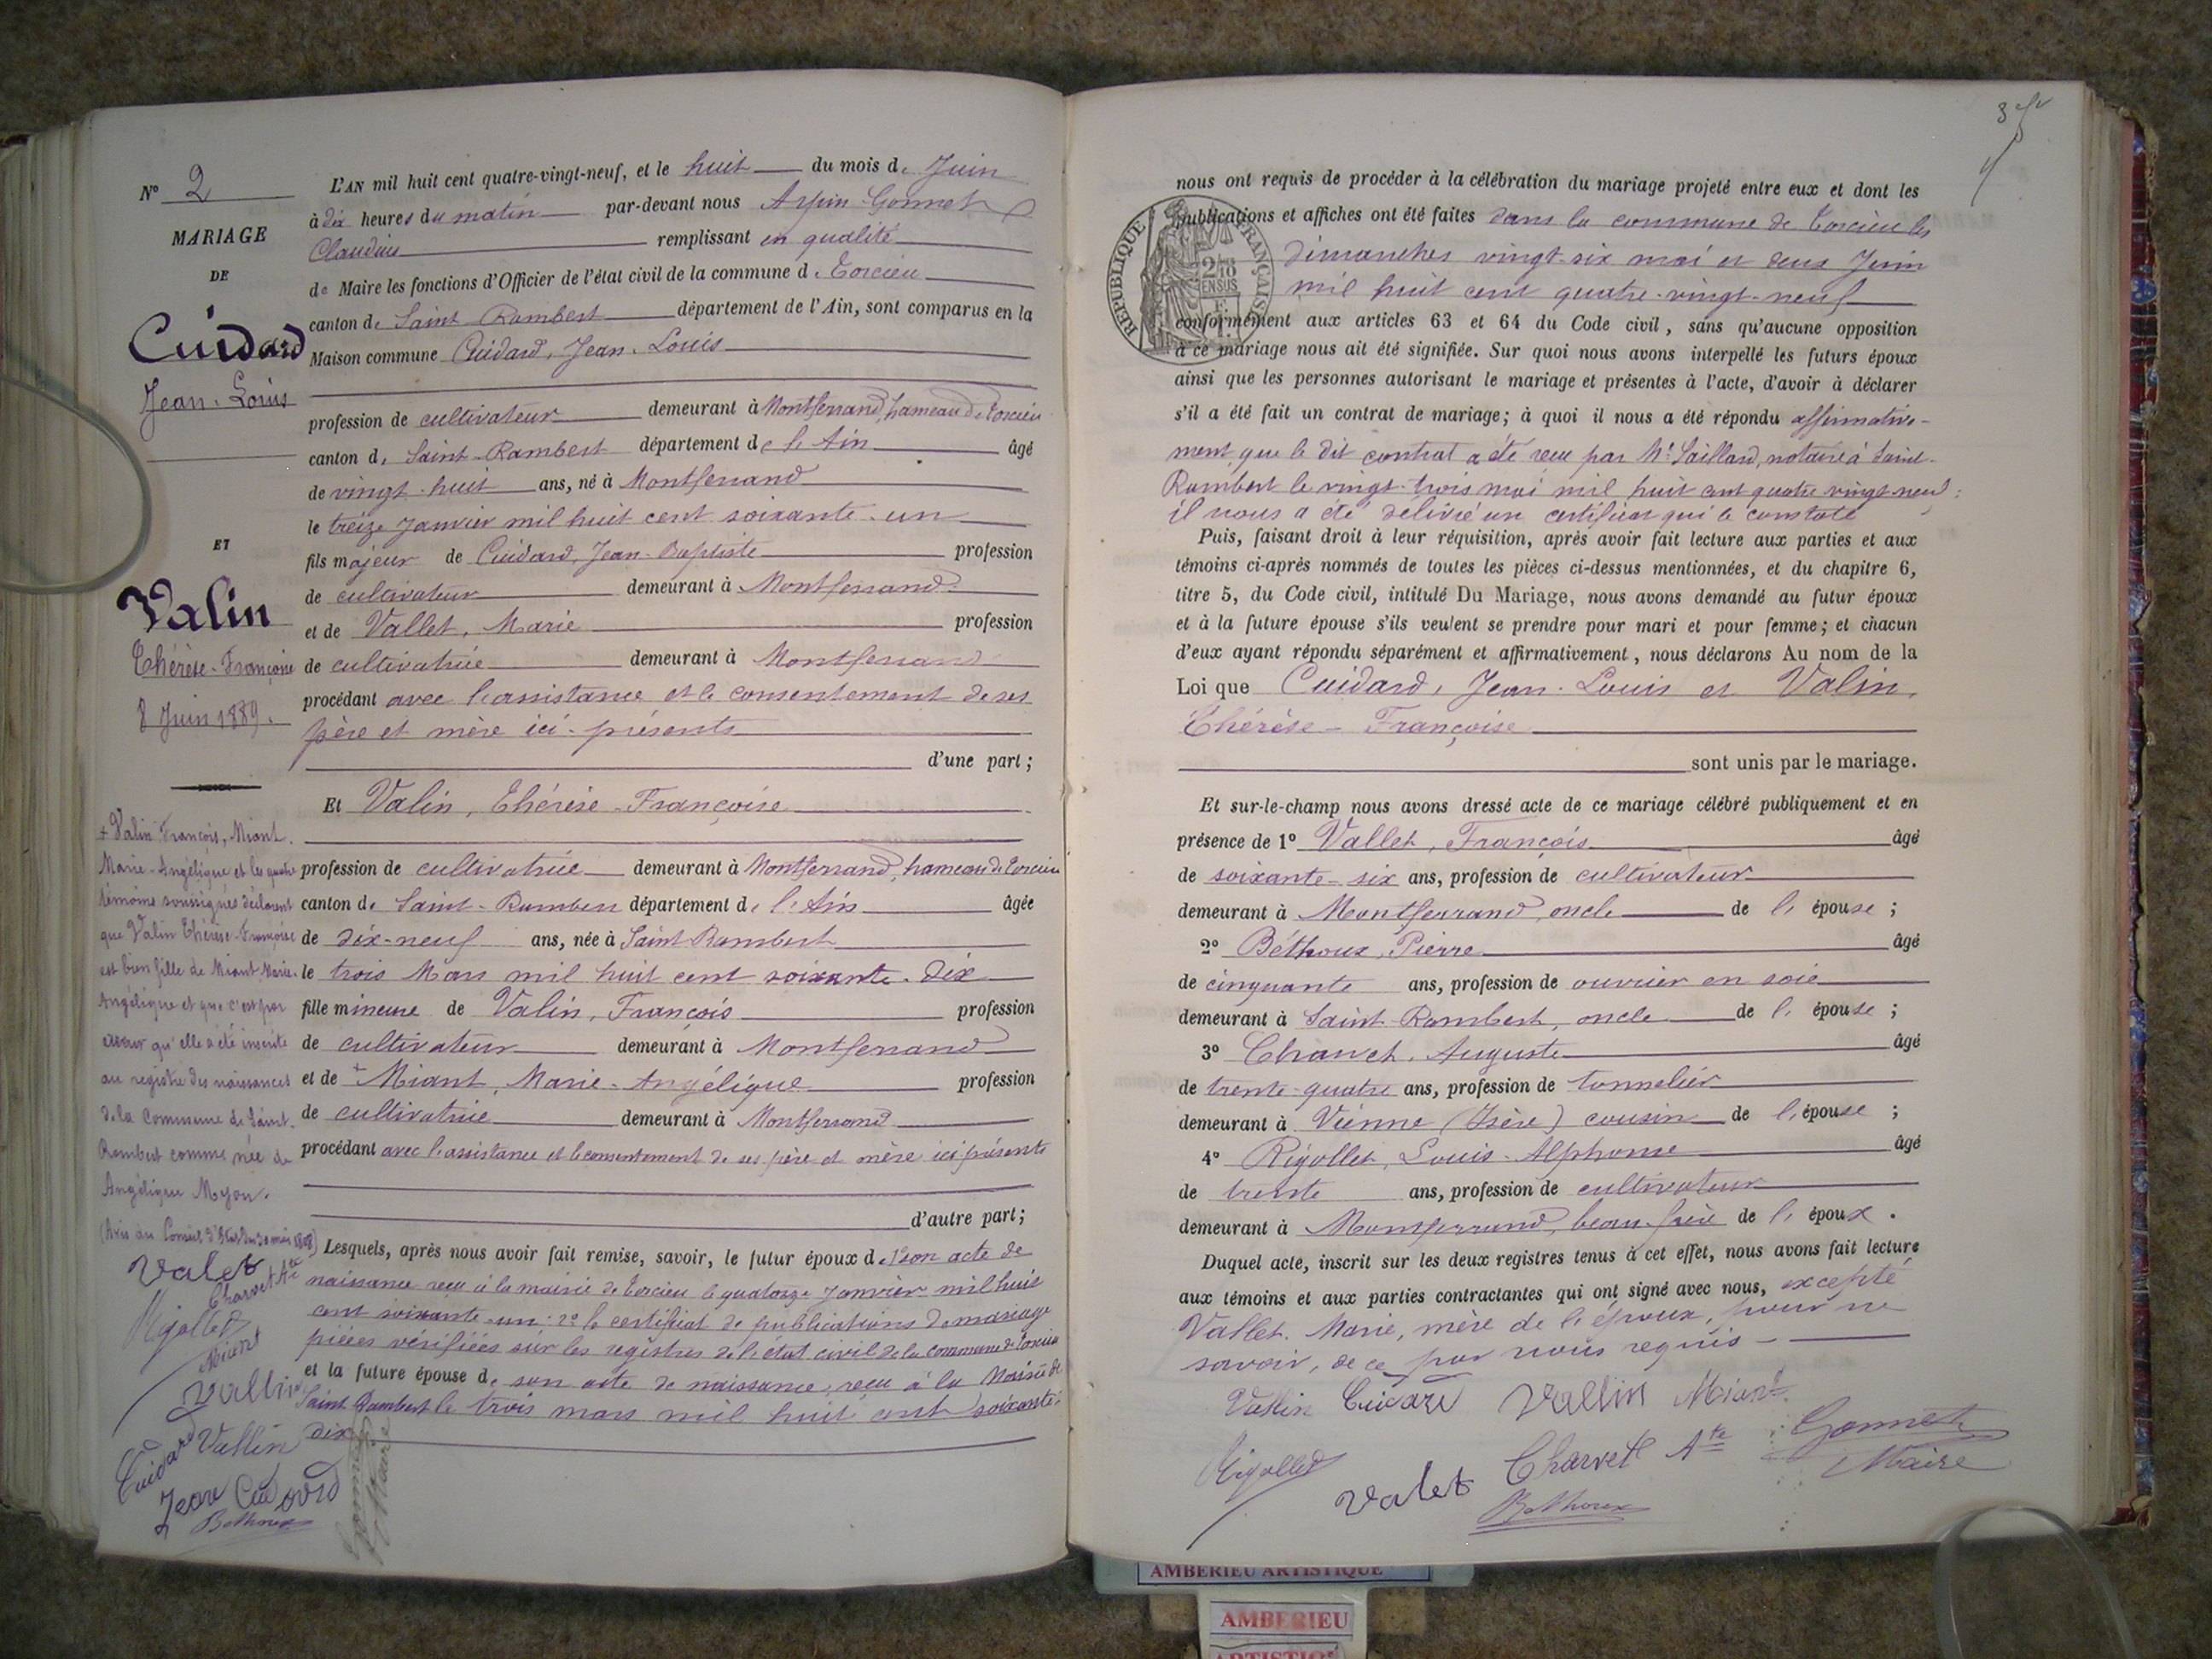 N° 2
MARIAGE
DE
Cuidard
Jean-Louis
ET
Valin
Thérèse-Françoise
8 Juin 1889.
+ Valin François, Miant
Marie-Angélique et les quatre
témoins soussignés déclarent
que Valin Thérèse-Françoise
est bien fille de Miant Marie-
Angélique et que c'est par
erreur qu'elle a été inscrite
au registre des naissances
de la Commune de Saint-
Rambert comme née de
Angélique Myon.
(Avis du Conseil d'Etat du 30 mars 1808)
Valet
Charvet Ate
Rigollet
Miant
Vallin
Cuidard Vallin
Jean Cuidard
Bethoux
Gonnet
Maire
L'AN mil huit cent quatre-vingt-neuf, et le huit du mois de Juin
à dix heures du matin par-devant nous Arpin-Gonnet
Claudius remplissant en qualité
de Maire les fonctions d'Officier de l'état civil de la commune de Torcieu
canton de Saint-Rambert département de l'Ain, sont comparus en la
Maison commune Cuidard, Jean-Louis
profession de cultivateur demeurant à Montferrand, hameau de Torcieu
canton de Saint-Rambert département de l'Ain âgé
de vingt-huit ans, né à Montferrand
le treize Janvier mil huit cent soixante-un
fils majeur de Cuidard, Jean-Baptiste profession
de cultivateur demeurant à Montferrand
et de Vallet, Marie profession
de cultivatrice demeurant à Montferrand
procédant avec l'assistance et le consentement de ses
père et mère ici-présents
d'une part;
Et Valin, Thérèse-Françoise
profession de cultivatrice demeurant à Montferrand, hameau de Torcieu
canton de Saint-Rambert département de l'Ain âgée
de dix-neuf ans, née à Saint-Rambert
le trois Mars mil huit cent soixante-dix
fille mineure de Valin, François profession
de cultivateur demeurant à Montferrand
et de + Miant, Marie-Angélique profession
de cultivatrice demeurant à Montferrand
procédant avec l'assistance et le consentement de ses père et mère ici présents
d'autre part;
Lesquels, après nous avoir fait remise, savoir, le futur époux de 1° son acte de
naissance reçu à la mairie de Torcieu le quatorze Janvier mil huit
cent soixante-un: 2° le certificat de publications de mariage
pièces vérifiées sur les registres de l'état civil de la commune de Torcieu
et la future épouse de son acte de naissance, reçu à la Mairie de
Saint-Rambert le trois mars mil huit cent soixante-
dix
35
nous ont requis de procéder à la célébration du mariage projeté entre eux et dont les
publications et affiches ont été faites dans la commune de Torcieu les
dimanches vingt-six mai et deux Juin
mil huit cent quatre-vingt-neuf
RÉPUBLIQUE FRANÇAISE
2/10 EN SUS
conformément aux articles 63 et 64 du Code civil, sans qu'aucune opposition
à ce mariage nous ait été signifiée. Sur quoi nous avons interpellé les futurs époux
ainsi que les personnes autorisant le mariage et présentes à l'acte, d'avoir à déclarer
s'il a été fait un contrat de mariage; à quoi il nous a été répondu affirmative-
ment que le dit contrat a été reçu par Me Saillard, notaire à Saint-
Rambert le vingt-trois mai mil huit cent quatre-vingt-neuf;
il nous a été délivré un certificat qui le constate
Puis, faisant droit à leur réquisition, après avoir fait lecture aux parties et aux
témoins ci-après nommés de toutes les pièces ci-dessus mentionnées, et du chapitre 6,
titre 5, du Code civil, intitulé Du Mariage, nous avons demandé au futur époux
et à la future épouse s'ils veulent se prendre pour mari et pour femme; et chacun
d'eux ayant répondu séparément et affirmativement, nous déclarons Au nom de la
Loi que Cuidard, Jean-Louis et Valin,
Thérèse-Françoise
sont unis par le mariage.
Et sur-le-champ nous avons dressé acte de ce mariage célébré publiquement et en
présence de 1° Vallet, François âgé
de soixante-six ans, profession de cultivateur
demeurant à Montferrand, oncle de l'épouse;
2° Béthoux, Pierre âgé
de cinquante ans, profession de ouvrier en soie
demeurant à Saint-Rambert, oncle de l'épouse;
3° Charvet, Auguste âgé
de trente-quatre ans, profession de tonnelier
demeurant à Vienne (Isère) cousin de l'épouse;
4° Rigollet, Louis-Alphonse âgé
de trente ans, profession de cultivateur
demeurant à Montferrand, beau-frère de l'époux.
Duquel acte, inscrit sur les deux registres tenus à cet effet, nous avons fait lecture
aux témoins et aux parties contractantes qui ont signé avec nous, excepté
Vallet Marie, mère de l'époux, pour ne
savoir, de ce par nous requis
Vallin Cuidard Vallin Miant
Rigollet Valet Charvet Ate Gonnet
Bethoux Maire
AMBERIEU ARTISTIQUE
AMBERIEU
ARTISTIQUE